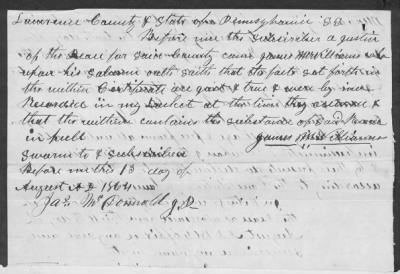 Lawrence County & State of Pennsylvania SS
Before me the subscriber a justice
of the Peace for said County came James McWilliams who
upon his solemn oath saith that the facts set forth in
the within Certificate are good & true & were by me
Recorded in my at the time they occured &
that the within contains the substance of said
in full James McWilliams
Sworn to & subscribed
Before me this 13 day of
August AD 1864
Jas McDonnald J.P.